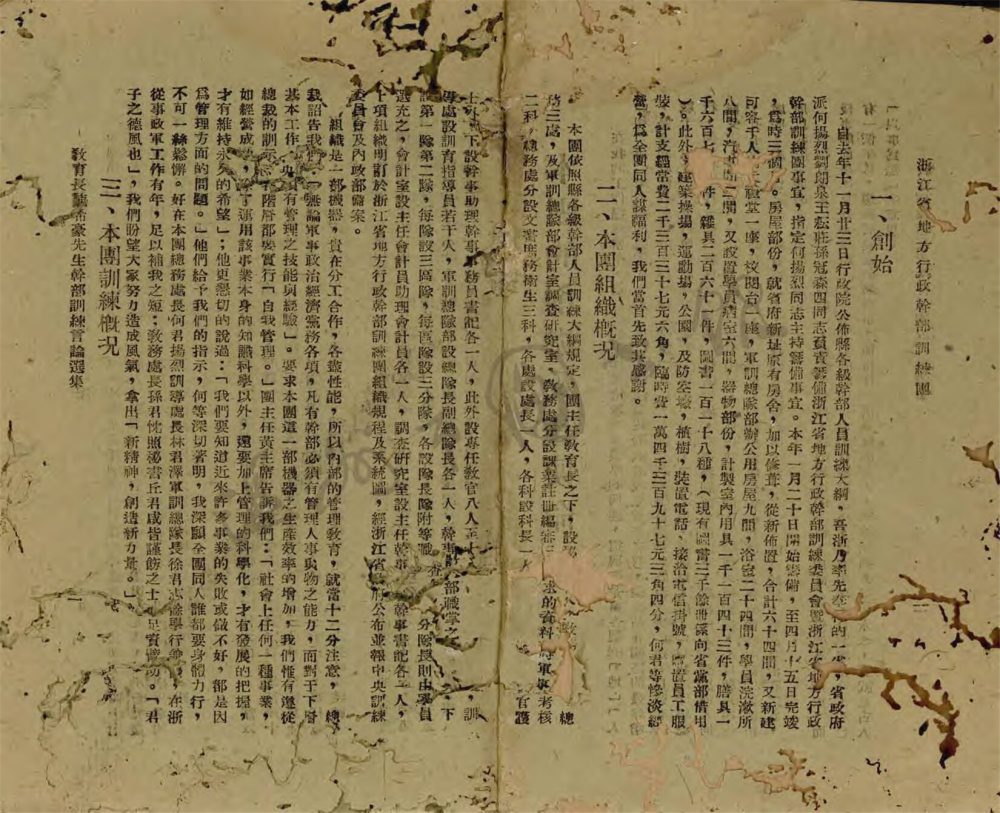 浙江省地方行政幹部訓練團
一、創始
自去年十一月廿三日行政院公佈縣各級幹部人員訓練大綱,吾浙乃率先 的一 ,省政府
派何揚烈劉朗泉王崧莊孫冠 四同志負責籌備浙江省地方行政幹部訓練委員會暨浙江省地方行政
幹部訓練團事宜,指定何揚烈同志主持籌備事宜。本年一月二十日開始籌備,至四月十五日完竣
,為時三 。房屋部份,就省府新址原有房舍,加以修葺,從新佈置,合計六十四間,又新建
可容千人 禮堂一座,校閱台一座,軍訓總隊部辦公用房屋九間,浴室二十四間,學員浣漱所
八間,汽車 間,又設置學員病室六間,器物部份,計製室內用具一千一百四十三件,膳具一
千六百七 件,雜具二百六十一件,圖書一百一十八種,(現有圖書三千餘冊係向省黨部借用
)。此外 建築操場,運動場,公園,及防空壕,植樹,裝置電話,接洽電信掛號, 置員工服
裝,計支經常費二千三百三十七元六角,臨時費一萬四千三百九十七元三角四分,何君等慘淡經
營,為全團同人謀福利,我們當首先致其感謝。
二、本團組織概況
本團依照縣各級幹部人員訓練大綱規定,團主任教育長之下,設 總
務三處,及軍訓總隊部會計室調查研究室,教務處分設課業註冊編審三 求的資料 軍事考核
二科,總務處分設文書庶務衛生三科,各處設處長一人,各科設科長一人 官護
士 下設幹事助理幹事事務員書記各一人,此外設專任教官八人至十 訓
導處設訓育指導員若干人,軍訓總隊部設總隊長副總隊長各一人,幹事 部職掌之 下
設第一隊第二隊,每隊設三區隊,每區隊設三分隊,各設隊長隊附等職 分隊長則由學員
選充之,會計室設主任會計員助理會計員各一人,調查研究室設主任幹事 幹事書記各一人,
上項組織明訂於浙江省地方行政幹部訓練團組織規程及系統圖,經浙江省政府公布並報中央訓練
委員會及內政部備案。
組織是一部機器,貴在分工合作,各盡性能,所以內部的管理教育,就當十二分注意, 總
裁詔告我們:「無論軍事政治經濟黨務各項,凡有幹部必須有管理人事與物之能力,而對于下層
基本工作,必須有管理之技能與經驗」。要求本團這一部機器之生產效率的增加,我們惟有遵從
總裁的訓示 階層都要實行「自我管理。」團主任黃主席告訴我們:「社會上任何一種事業,
如經營成 ,除了運用該事業本身的知識科學以外,還要加上管理的科學化,才有發展的把握,
才有維持永久的希望」;他更懇切的說過:「我們要知道近來許多事業的失敗或做不好,都是因
為管理方面的問題。」他們給予我們的指示,何等深切著明,我深願全團同人誰都要身體力行,
不可一絲鬆懈。好在本團總務處長何君揚烈訓導處長林君澤軍訓總隊長徐君志餘學行 ,在浙
從事政軍工作有年,足以補我之短;教務處長孫君忱照秘書丘君咸皆謹飭之士 足資 助。「君
子之德風也」,我們盼望大家努力造成風氣,拿出「新精神,創造新力量。」
三、本團訓練概况
教育長 希豪先生幹部訓練言論選集
一